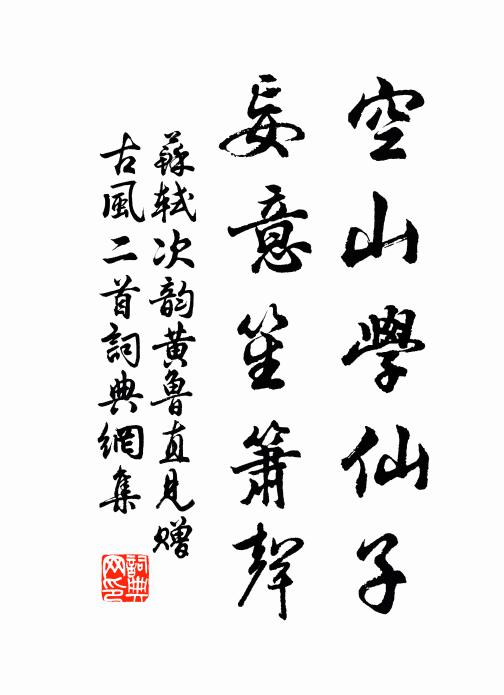 空山學仙子
妄意笙簫聲
蘇軾次韵黄魯直見贈
古風二首詞典網集
詞典
网印